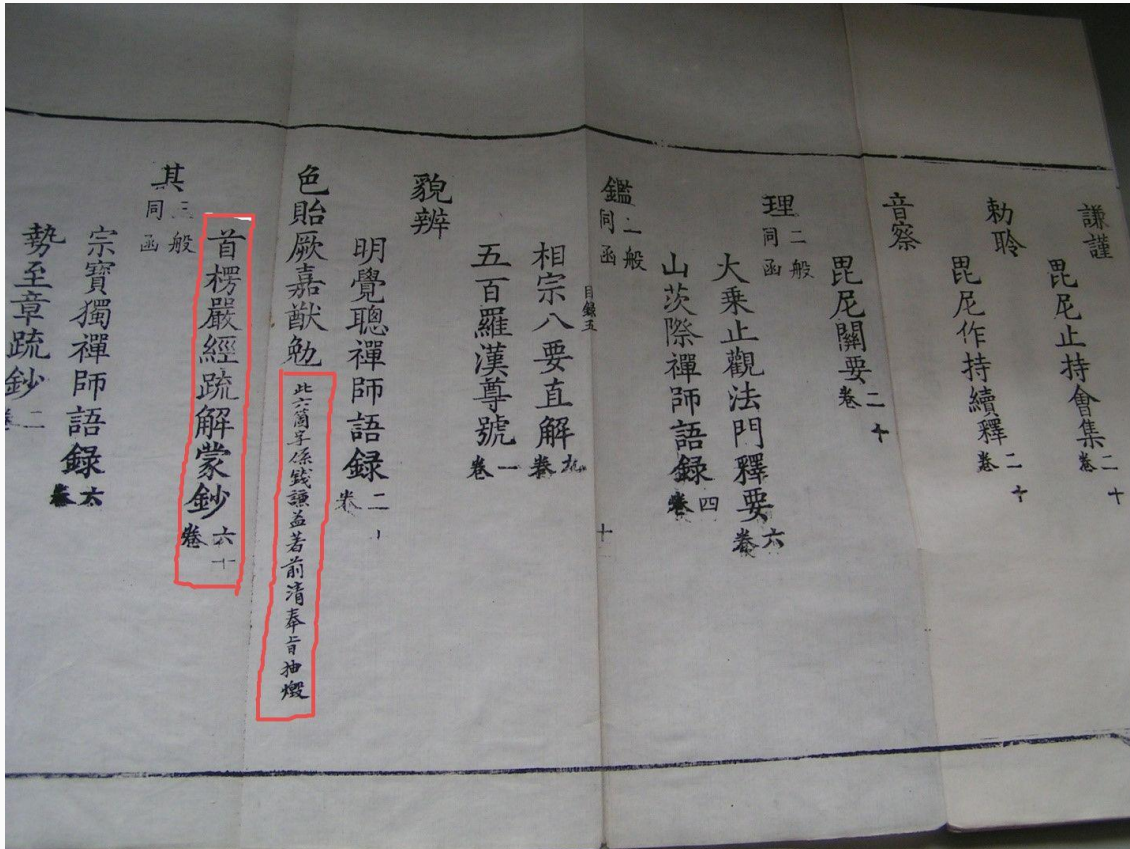 謙謹
毘尼止持會集二十卷
勅聆
毘尼作持續釋二十卷
音察
毘尼關要二十卷
理二般同函
大乘止觀法門釋要六卷
山茨際禪師語錄四卷
鑑二般同函
目錄五
十
相宗八要直解九卷
五百羅漢尊號一卷
貌辨
明覺聰禪師語錄二卷
色貽厥嘉猷勉
此六箇字係錢謙益著前清奉旨抽燬
首楞嚴經疏解蒙鈔六十卷
其三般同函
宗寶獨禪師語錄六卷
勢至章疏鈔二卷